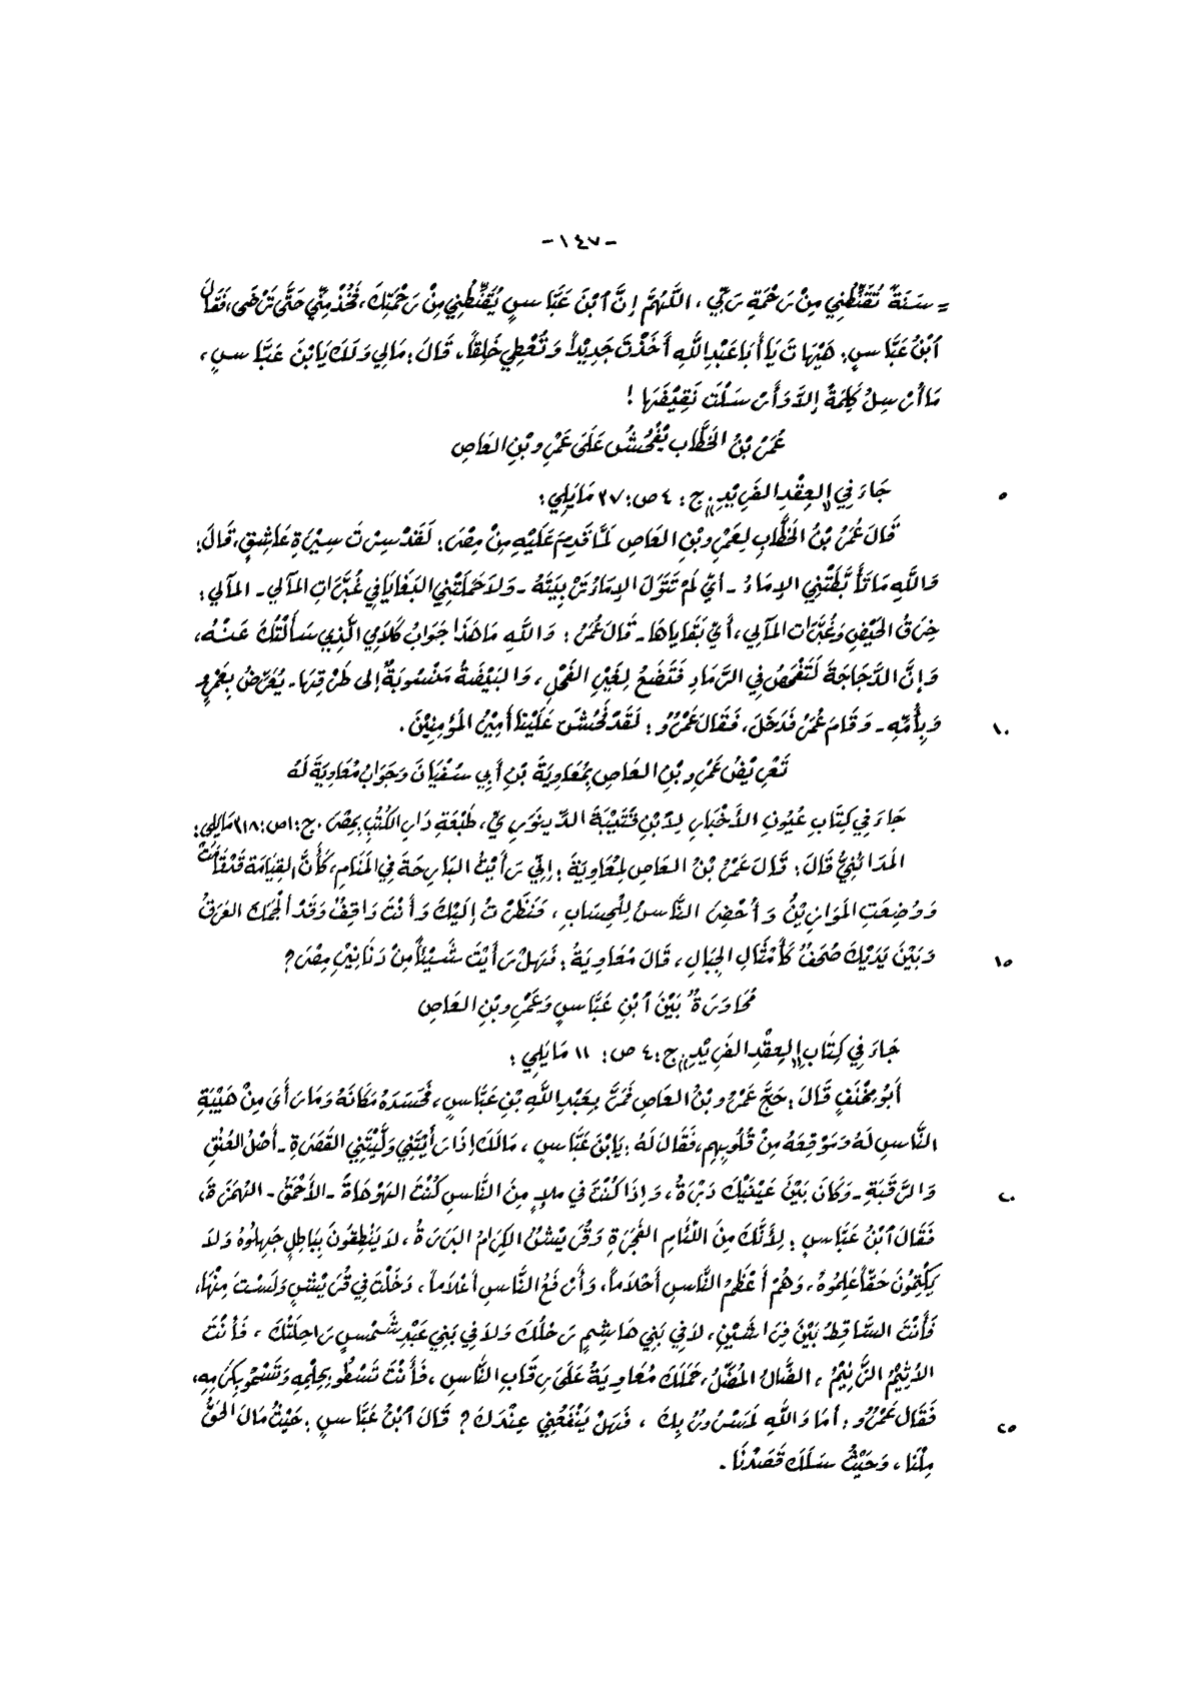 -١٤٧-
= سَنَةً تُقَنِّطُنِي مِنْ رَحْمَةِ رَبِّي، اللَّهُمَّ إِنَّ ٱبْنَ عَبَّاسٍ يُقَنِّطُنِي مِنْ رَحْمَتِكَ، فَخُذْ مِنِّي حَتَّى تَرْضَى، فَقَالَ
ٱبْنُ عَبَّاسٍ: هَيْهَاتَ يَا أَبَا عَبْدِ اللَّهِ أَخَذْتَ جَدِيْداً وَتُعْطِي خَلِقاً، قَالَ: مَالِي وَلَكَ يَابْنَ عَبَّاسٍ،
مَا أُرْسِلُ كَلِمَةً إِلاَّ وَأَرْسَلْتَ نَقِيْضَهَا!
عُمَرُ بْنُ الخَطَّابِ يَفْحُشُ عَلَى عَمْرِو بْنِ العَاصِ
٥
جَاءَ فِي «العِقْدِ الفَرِيْدِ» ج: ٤ ص: ٢٧ مَايَلِي:
قَالَ عُمَرُ بْنُ الخَطَّابِ لِعَمْرِو بْنِ العَاصِ لَمَّا قَدِمَ عَلَيْهِ مِنْ مِصْرَ: لَقَدْ سِرْتَ سِيْرَةَ عَاشِقٍ، قَالَ:
وَاللَّهِ مَا تَأَبَّطَتْنِي الإِمَاءُ - أَيْ لَمْ تَتَوَلَّ الإِمَاءُ تَرْبِيَتَهُ - وَلاَ حَمَلَتْنِي البَغَايَا فِي غُبَّرَاتِ المَآلِي - المَآلِي:
خِرَقُ الحَيْضِ وَغُبَّرَاتِ المَآلِي، أَيْ بَقَايَاهَا - قَالَ عُمَرُ: وَاللَّهِ مَا هَذَا جَوَابُ كَلاَمِي الَّذِي سَأَلْتُكَ عَنْهُ،
وَإِنَّ الدَّجَاجَةَ لَتَفْحَصُ فِي الرَّمَادِ فَتَضَعُ لِغَيْرِ الفَحْلِ، وَالبَيْضَةُ مَنْسُوبَةٌ إِلَى طَرْقِهَا - يُعَرِّضُ بِعَمْرٍو
١٠
وَبِأُمِّهِ - وَقَامَ عُمَرُ فَدَخَلَ، فَقَالَ عَمْرٌو: لَقَدْ فَحُشَ عَلَيْنَا أَمِيْرُ المُؤْمِنِيْنَ.
تَعْرِيْضُ عَمْرِو بْنِ العَاصِ بِمُعَاوِيَةَ بْنِ أَبِي سُفْيَانَ وَجَوَابُ مُعَاوِيَةَ لَهُ
جَاءَ فِي كِتَابِ عُيُونِ الأَخْبَارِ لِابْنِ قُتَيْبَةَ الدِّيْنَوَرِيِّ، طَبْعَةِ دَارِ الكُتُبِ بِمِصْرَ. ج: ١ ص: ٣١٨ مَايَلِي:
المَدَائِنِيُّ قَالَ: قَالَ عَمْرُو بْنُ العَاصِ لِمُعَاوِيَةَ: إِنِّي رَأَيْتُ البَارِحَةَ فِي المَنَامِ، كَأَنَّ القِيَامَةَ قَدْ قَامَتْ
وَوُضِعَتِ المَوَازِيْنُ وَأُحْضِرَ النَّاسُ لِلْحِسَابِ، فَنَظَرْتُ إِلَيْكَ وَأَنْتَ وَاقِفٌ وَقَدْ أَلْجَمَكَ العَرَقُ
١٥
وَبَيْنَ يَدَيْكَ صُحُفٌ كَأَمْثَالِ الجِبَالِ، قَالَ مُعَاوِيَةُ: فَهَلْ رَأَيْتَ شَيْئاً مِنْ دَنَانِيْرِ مِصْرَ؟
مُحَاوَرَةٌ بَيْنَ ٱبْنِ عَبَّاسٍ وَعَمْرِو بْنِ العَاصِ
جَاءَ فِي كِتَابِ «العِقْدِ الفَرِيْدِ» ج: ٤ ص: ١١ مَايَلِي:
أَبُو مِخْنَفٍ قَالَ: حَجَّ عَمْرُو بْنُ العَاصِ فَمَرَّ بِعَبْدِ اللَّهِ بْنِ عَبَّاسٍ، فَحَسَدَهُ مَكَانَهُ وَمَا رَأَى مِنْ هَيْبَةِ
النَّاسِ لَهُ وَمَوْقِعَهُ مِنْ قُلُوبِهِمْ، فَقَالَ لَهُ: يَابْنَ عَبَّاسٍ، مَالَكَ إِذَا رَأَيْتَنِي وَلَّيْتَنِي القَصَرَةَ - أَصْلُ العُنُقِ
٢٠
وَالرَّقَبَةِ - وَكَانَ بَيْنَ عَيْنَيْكَ دَبَرَةٌ، وَإِذَا كُنْتَ فِي مَلأٍ مِنَ النَّاسِ كُنْتَ الهَوْهَاةَ - الأَحْمَقَ - الهُمَزَةَ،
فَقَالَ ٱبْنُ عَبَّاسٍ: لِأَنَّكَ مِنَ اللِّئَامِ الفَجَرَةِ وَقُرَيْشُ الكِرَامُ البَرَرَةُ، لاَ يَنْطِقُونَ بِبَاطِلٍ جَهِلُوهُ وَلاَ
يَكْتُمُونَ حَقّاً عَلِمُوهُ، وَهُمْ أَعْظَمُ النَّاسِ أَحْلاَماً، وَأَرْفَعُ النَّاسِ أَعْلاَماً، دَخَلْتَ فِي قُرَيْشٍ وَلَسْتَ مِنْهَا،
فَأَنْتَ السَّاقِطُ بَيْنَ فِرَاشَيْنِ، لاَ فِي بَنِي هَاشِمٍ رَحْلُكَ وَلاَ فِي بَنِي عَبْدِ شَمْسٍ رَاحِلَتُكَ، فَأَنْتَ
الأَثِيْمُ الزَّنِيْمُ، الضَّالُّ المُضِلُّ، حَمَلَكَ مُعَاوِيَةُ عَلَى رِقَابِ النَّاسِ، فَأَنْتَ تَسْطُو بِحِلْمِهِ وَتَسْمُو بِكَرَمِهِ،
٢٥
فَقَالَ عَمْرٌو: أَمَا وَاللَّهِ لَمَسْرُورٌ بِكَ، فَهَلْ يَنْفَعُنِي عِنْدَكَ؟ قَالَ ٱبْنُ عَبَّاسٍ: حَيْثُ مَالَ الحَقُّ
مِلْنَا، وَحَيْثُ سَلَكَ قَصَدْنَا.